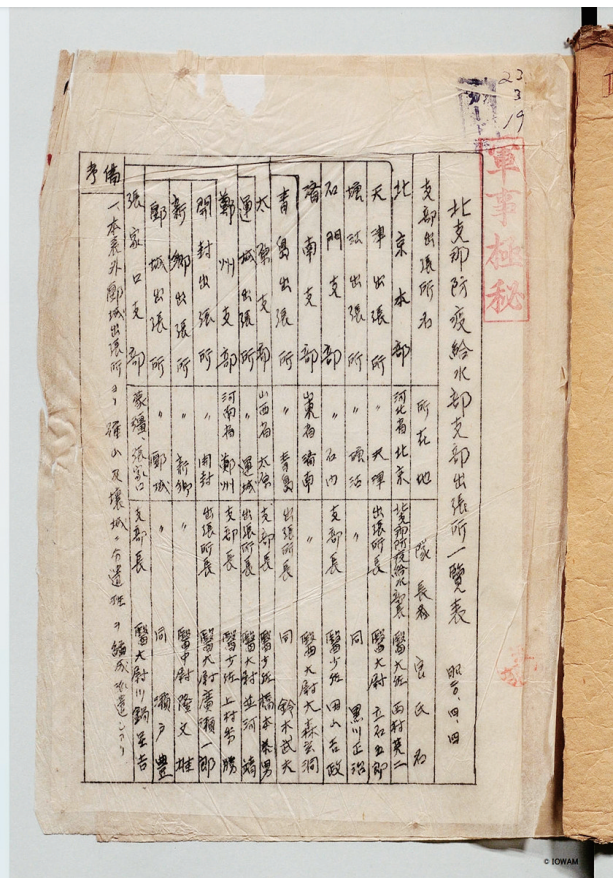 23
3
19
軍事極秘
北支那防疫給水部支部出張所一覧表 昭 四、四
支部出張所名 所在地 隊長 官氏名
北京本部 河北省北京 北支那防疫給水部長 醫大佐 西村英二
天津出張所 〃 天津 出張所長 醫大尉 立石五郎
塘沽出張所 〃 塘沽 〃 同 黒川正治
石門支部 〃 石門 支部長 醫少佐 田山吉政
濟南支部 山東省濟南 〃 醫大尉 大森玄洞
青島出張所 〃 青島 出張所長 同 鈴木武夫
太原支部 山西省太原 支部長 醫少佐 橋本 男
運城出張所 〃 運城 出張所長 醫大尉 並河 靖
鄭州支部 河南省鄭州 支部長 醫少佐 上村 勝
開封出張所 〃 開封 出張所長 醫大尉 廣瀬一郎
新鄉出張所 〃 新鄉 〃 醫中尉 隆 文雄
郾城出張所 〃 郾城 〃 同 瀬戸 豊
張家口支部 蒙疆、張家口 支部長 醫大尉 川鍋 吉
備考
一、本表外郾城出張所ヨリ確山及壤城ニ分遣班ヲ編成派遣シアリ
© IOWAM